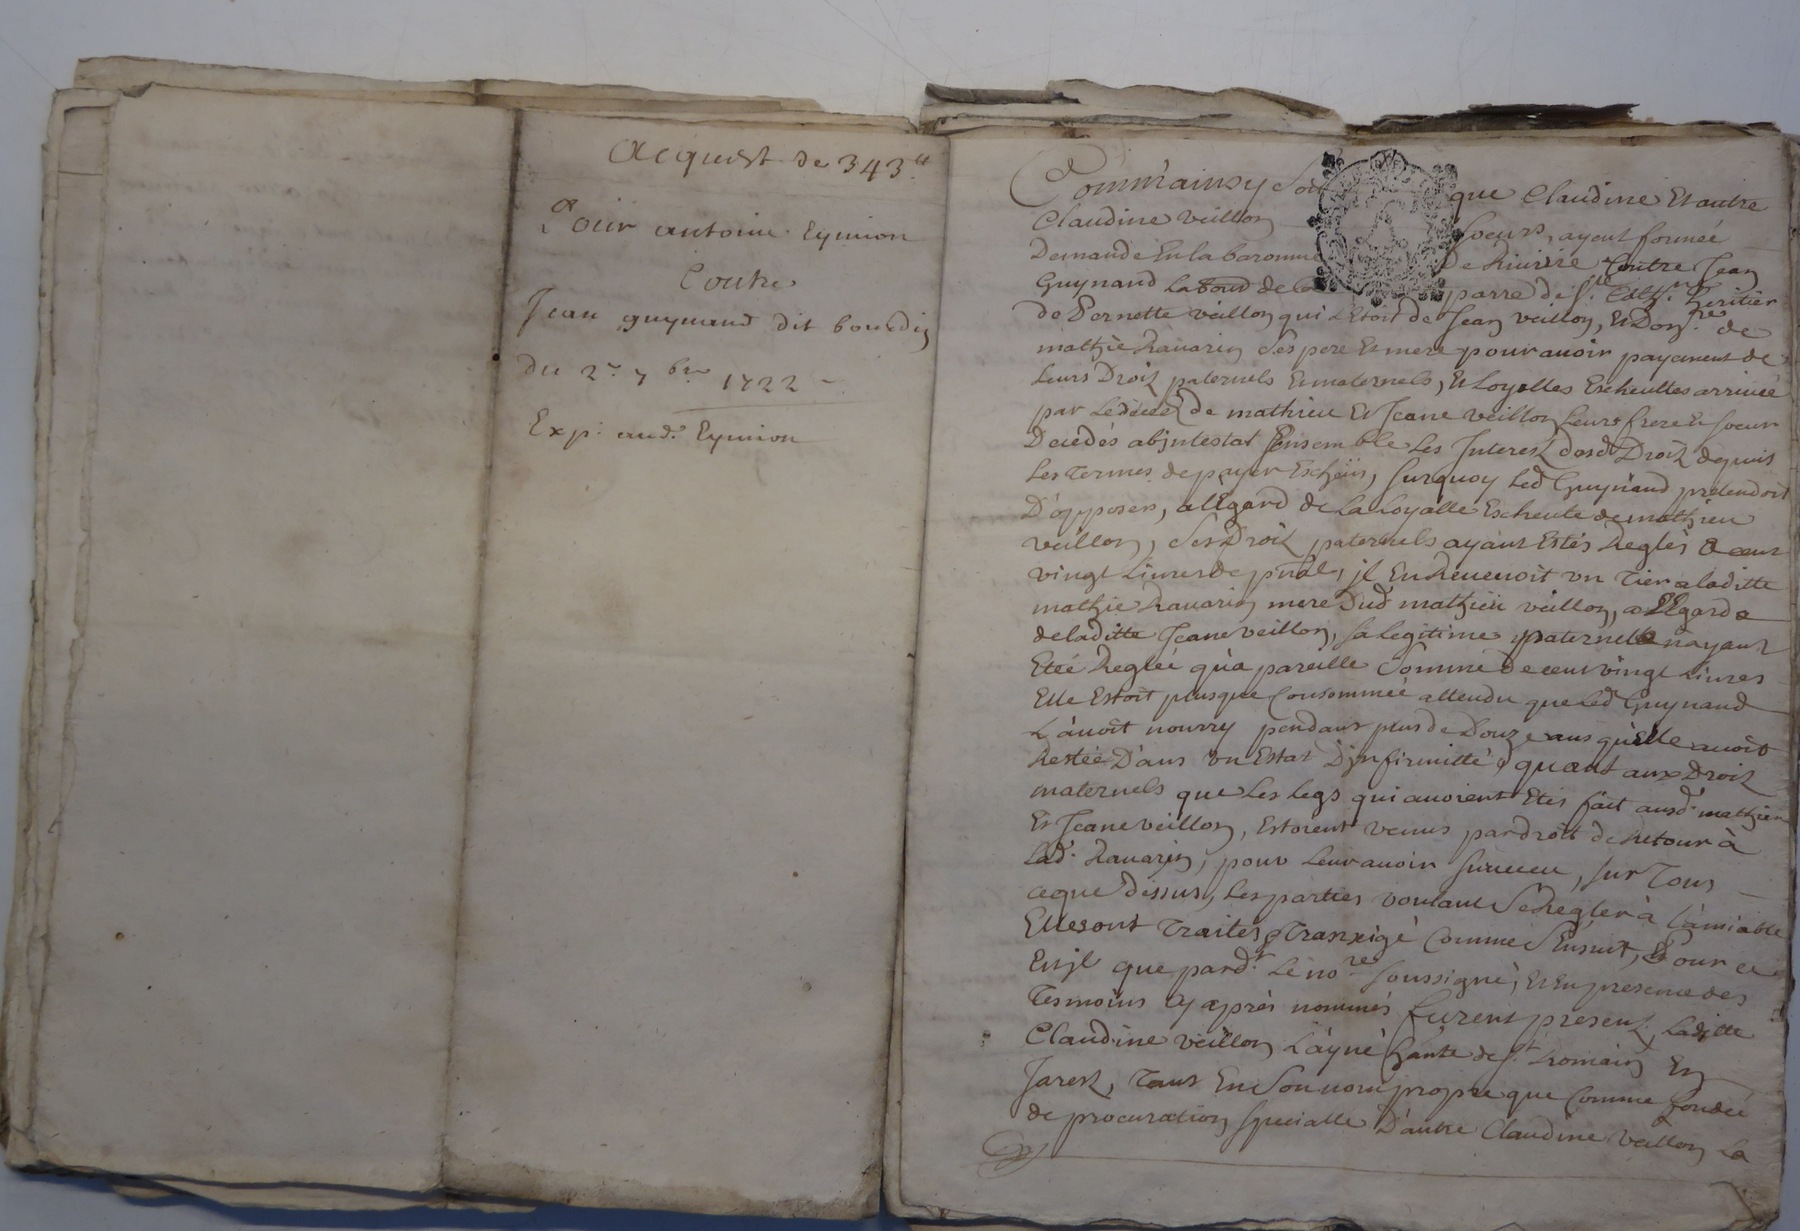 Acquest de 343.ll
Pour antoine Eymion
Contre
Jean guynand dit bourdin
du 2.e 7.bre 1722
Exp. aud. Eymion
Comm'ainsy soit que Claudine Et autre
Claudine veillon soeurs, ayent formée
Demande En la baronnie De Riverie Contre Jean
Guynand Labourd de la parre de S.te Cath.ne heritier
de Pernette veillon qui L'Etoit de Jean veillon, Et Don.re de
mathie Ravarin Ses pere Et mere pour avoir payement de
Leurs Droit paternels Et maternels, Et Loyalles Escheuttes arrivée
par Lédécéd de mathieu Et Jeane veillon Leurs frere Et soeur
Decedés abjntestat Ensemble Les Jnterest desd Droit depuis
Les Termes de payer Escheus, surquoy Led Guynand pretendoit
D'opposer, al'Egard de La Loyalle Escheute de mathieu
veillon, Ses Droit paternels ayant Estés Reglés a cent
vingt Livres de pnal, jl En Revenoit un Tier a laditte
mathie Ravarin mere Dud mathieu veillon, a l'Egard
deladitte Jeane veillon, sa legitime paternelle n'ayant
Etée Reglée qu'a pareille Somme de cent vingt Livres
Elle Estoit plusque Consommée attendu que Led Guynand
L'avoit nourry pendant plus de Douze ans qu'Elle avoit
Restée Dans un Estat D'jnfirmitté, quant aux Droit
maternels que Les Legs qui avoient Etés fait ausd. mathieu
Et Jeane veillon, Estoient venus par droit de Retour à
Lad. Ravarin, pour Leur avoir surveçu, sur Tous
ceque Dessus, Les parties voulant Se Regler à L'amiable
Elles ont Traités & Tranxigé Comme S'Ensuit, Pour ce
Est jl que pard.t Le no.re soussigné, Et En presence des
Tesmoins Cy après nommés furent present, Laditte
Claudine veillon L'ayné hante de S.t Romain En
Jarest, Tant En Son nom propre que Comme fondée
de procuration specialle D'autre Claudine veillon La